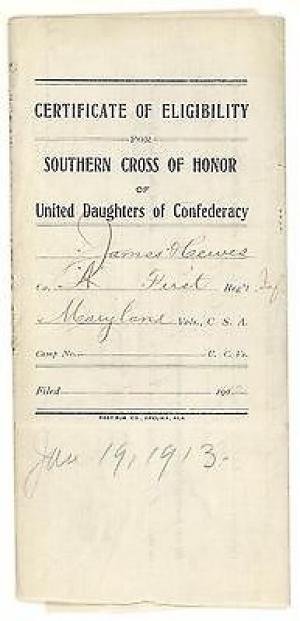 CERTIFICATE OF ELIGIBILITY
FOR
SOUTHERN CROSS OF HONOR
OF
United Daughters of Confederacy
James Hewes
Co. A First Reg't Inf
Maryland Vols., C. S. A.
Camp No. U. C. Vs.
Filed 190
POST PUB. CO., OPELIKA, ALA.
Jan 19, 1913.